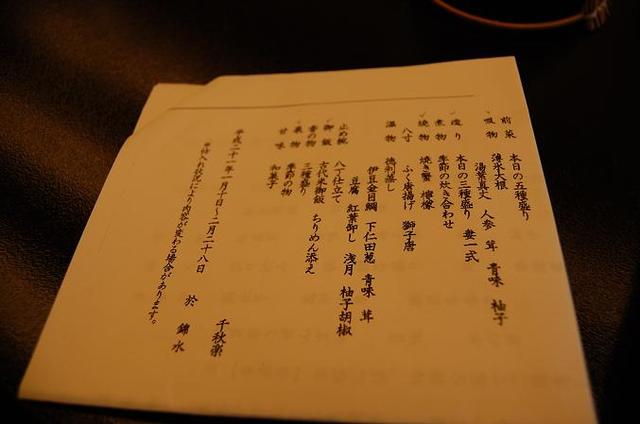 前菜 本日の五種盛り
吸物 薄氷大根
湯葉真丈 人参 茸 青味 柚子
造り 本日の三種盛り 妻一式
煮物 季節の炊き合わせ
焼物 焼き蟹 檸檬
八寸 ふぐ唐揚げ 獅子唐
温物 徳利蒸し
伊豆金目鯛 下仁田葱 青味 茸
豆腐 紅葉卸し 浅月 柚子胡椒
止め椀 八丁仕立て
御飯 古代米御飯 ちりめん添え
香の物 三種盛り
果物 季節の物
甘味 和菓子
平成二十一年一月十日～二月二十八日 千秋楽
於 錦水
※仕入れ状況により内容が変わる場合があります。